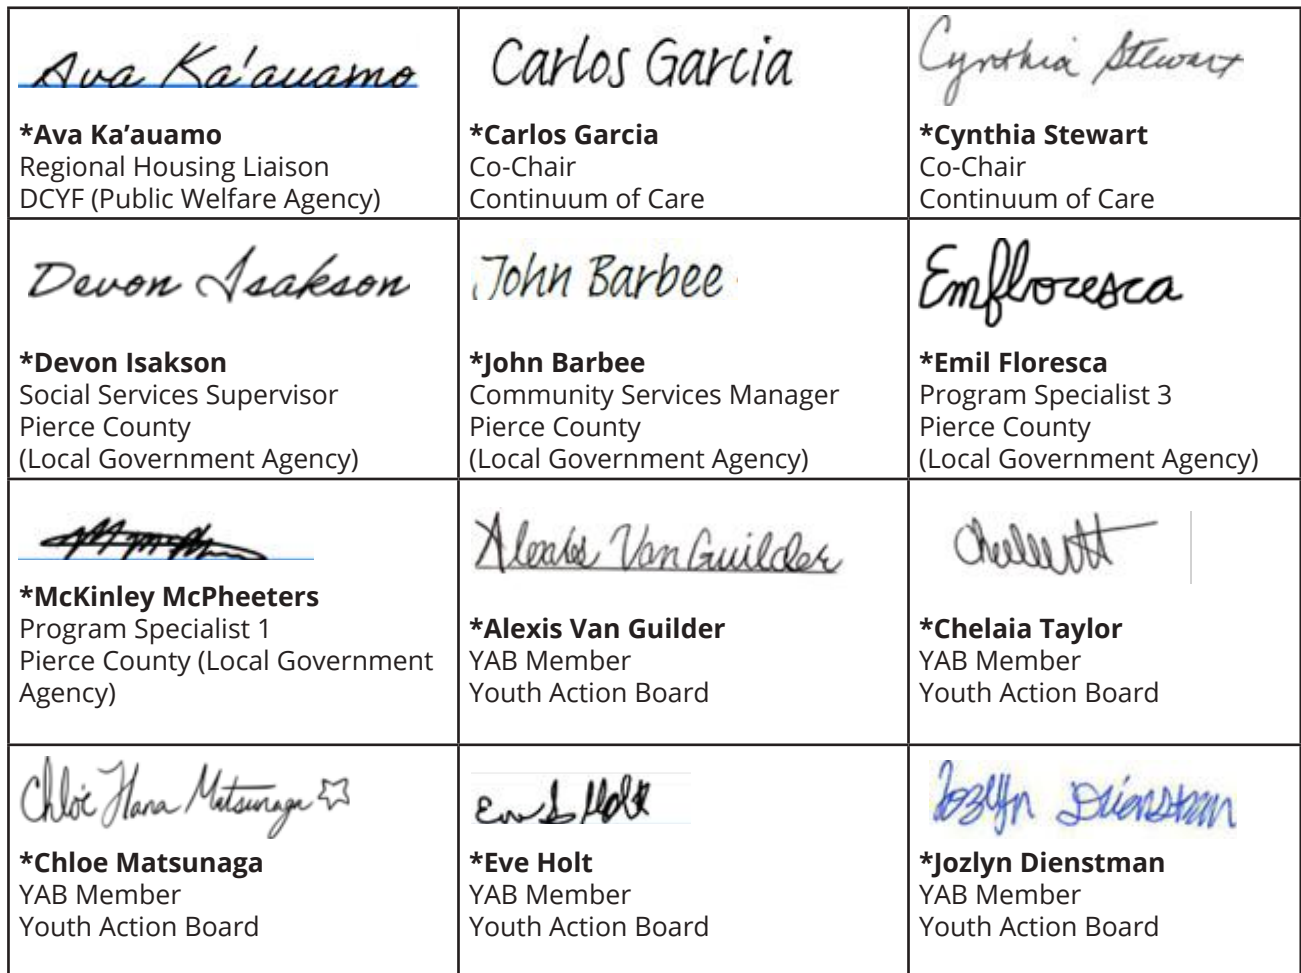 Ava Ka'auamo
*Ava Ka’auamo
Regional Housing Liaison
DCYF (Public Welfare Agency)
Carlos Garcia
*Carlos Garcia
Co-Chair
Continuum of Care
Cynthia Stewart
*Cynthia Stewart
Co-Chair
Continuum of Care
Devon Isakson
*Devon Isakson
Social Services Supervisor
Pierce County
(Local Government Agency)
John Barbee
*John Barbee
Community Services Manager
Pierce County
(Local Government Agency)
Emfloresca
*Emil Floresca
Program Specialist 3
Pierce County
(Local Government Agency)
*McKinley McPheeters
Program Specialist 1
Pierce County (Local Government
Agency)
Alexis Van Guilder
*Alexis Van Guilder
YAB Member
Youth Action Board
*Chelaia Taylor
YAB Member
Youth Action Board
Chloe Hana Matsunaga
*Chloe Matsunaga
YAB Member
Youth Action Board
Holt
*Eve Holt
YAB Member
Youth Action Board
Jozlyn Dienstman
*Jozlyn Dienstman
YAB Member
Youth Action Board